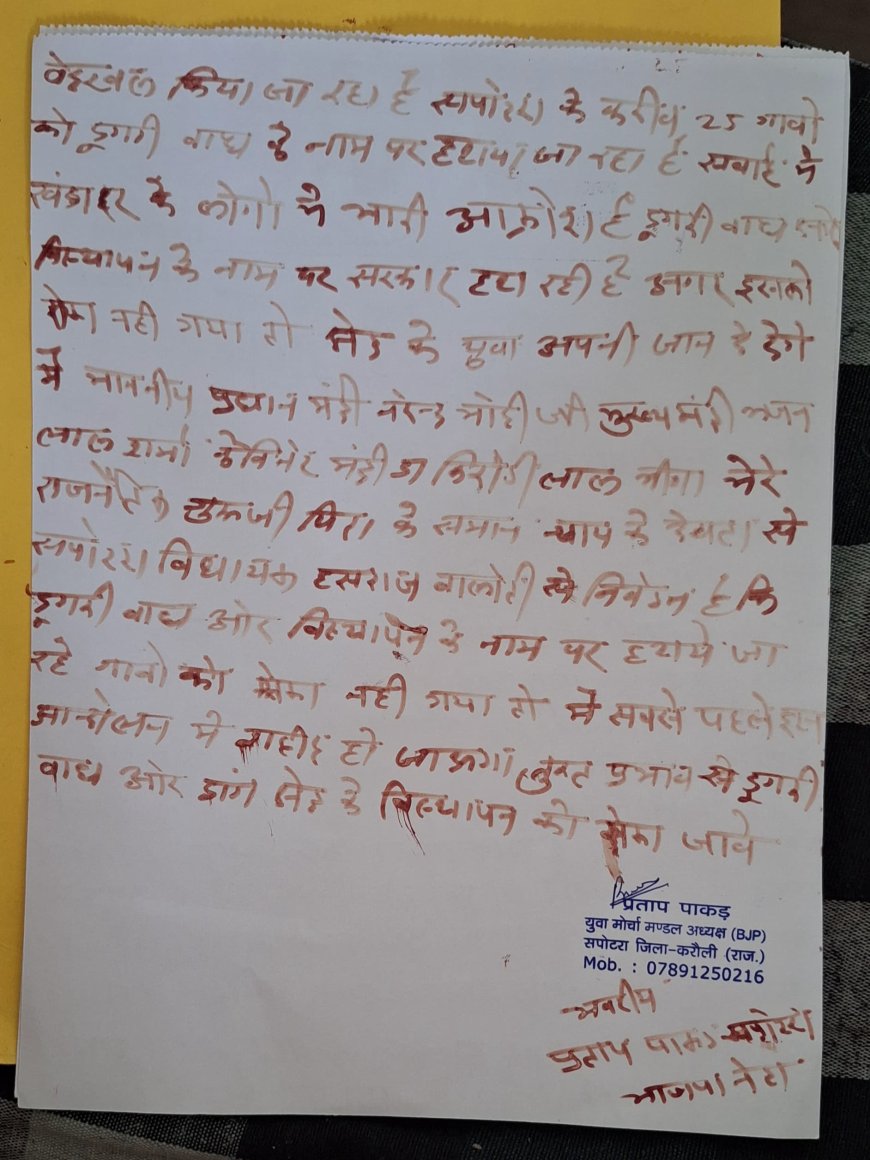 वेदखल किया जा रहा है सपोटरा के करीब 25 गावो
को डूगरी बाध के नाम पर हटाया जा रहा है सवाई मे
खंडार के लोगो मे भारी आक्रोश है डूगरी बाध
विस्थापन के नाम पर सरकार हटा रही है अगर इसको
रोका नही गया तो क्षेत्र के युवा अपनी जान दे देगे
मे माननीय प्रधान मंत्री नरेन्द्र मोदी जी मुख्य मंत्री भजन
लाल शर्मा केबिनेट मंत्री डा किरोडी लाल मीणा मेरे
राजनैतिक गुरूजी पिता के समान न्याय के देवता से
सपोटरा विधायक हसराज बालोती से निवेदन है कि
डूगरी बाध ओर विस्थापन के नाम पर हटाये जा
रहे गावो को रोका नही गया तो मे सबसे पहले इस
आन्दोलन मे शहीद हो जाऊगा तुरन्त प्रभाव से डूगरी
बाध ओर डांग क्षेत्र के विस्थापन को रोका जावे
प्रताप पाकड़
युवा मोर्चा मण्डल अध्यक्ष (BJP)
सपोटरा जिला-करौली (राज.)
Mob. : 07891250216
भवदीय
प्रताप पाकड सपोटरा
भाजपा नेता